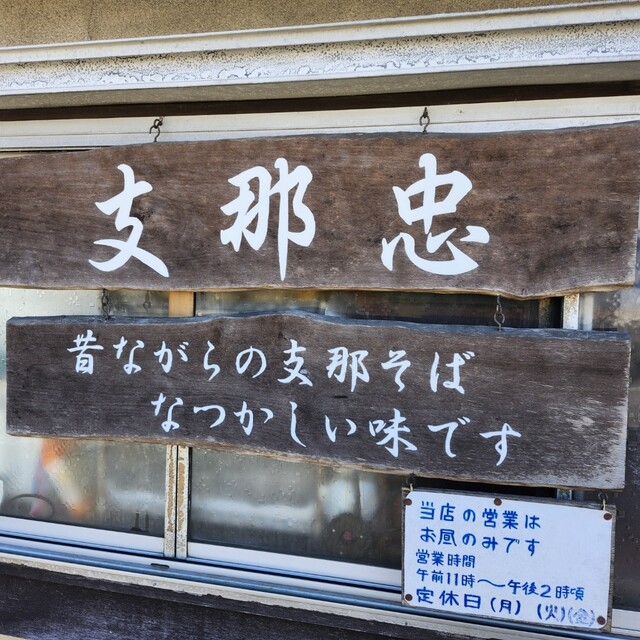 支那忠
昔ながらの支那そば
なつかしい味です
当店の営業は
お昼のみです
営業時間
午前11時〜午後2時頃
定休日(月)(火)(金)